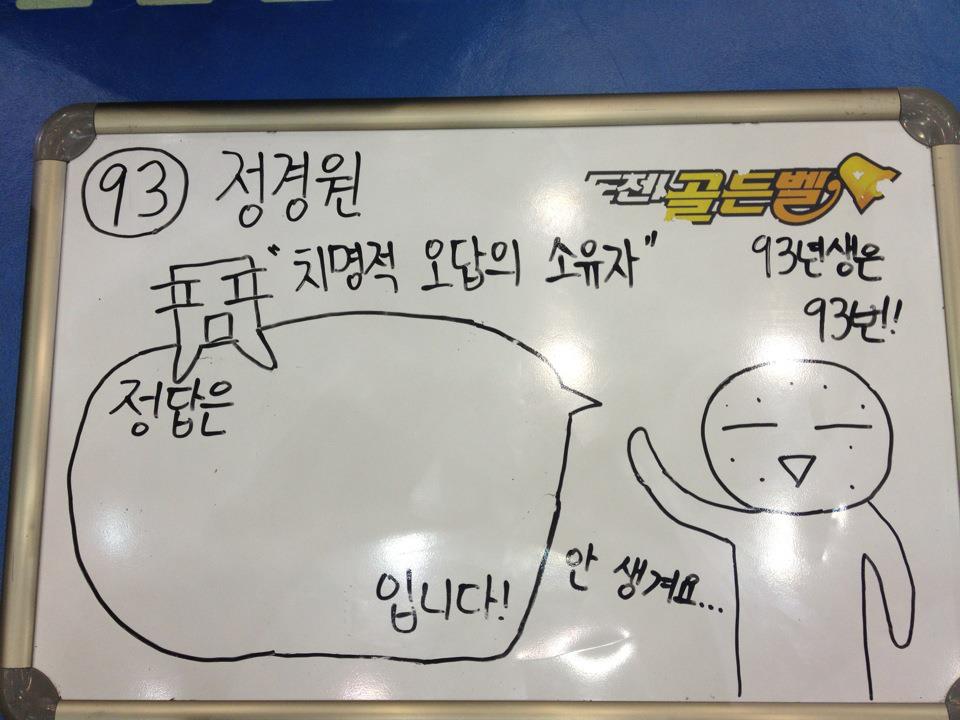 93 정경원
도전! 골든벨
"치명적 오답의 소유자"
93년생은
93번!!
정답은
입니다!
안 생겨요...